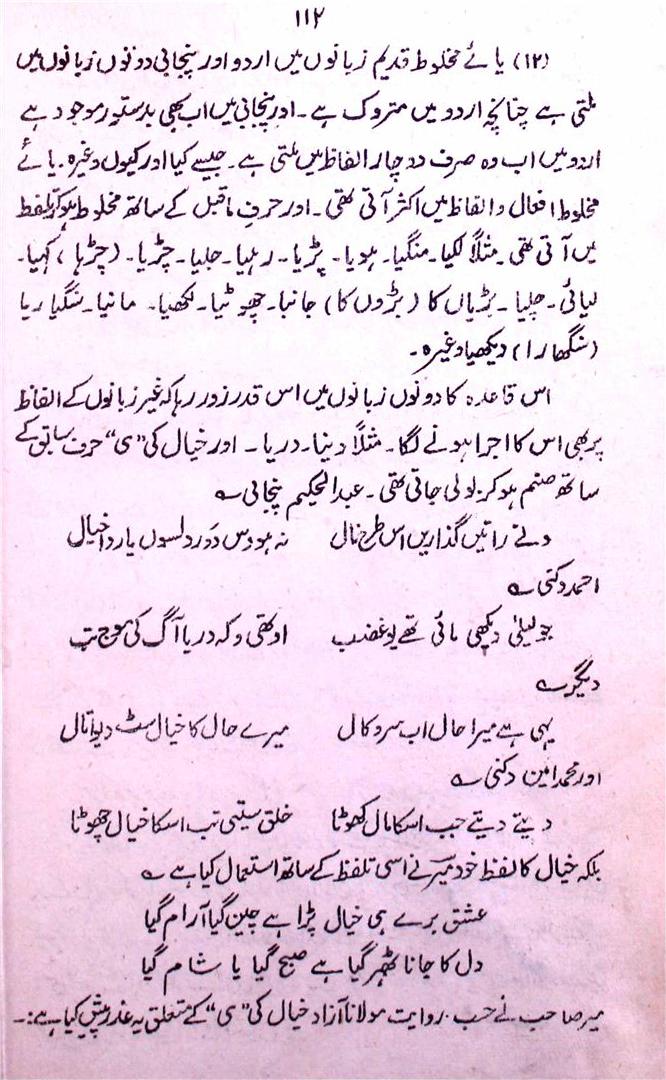 ۱۱۲
(۱۲) یائے مخلوط قدیم زبانوں میں اردو اور پنجابی دونوں زبانوں میں
ملتی ہے چنانچہ اردو میں متروک ہے ۔ اور پنجابی میں اب بھی بدستور موجود ہے
اردو میں اب وہ صرف دو چار الفاظ میں ملتی ہے ۔ جیسے کیا اور کیوں وغیرہ ۔ یائے
مخلوط افعال و الفاظ میں اکثر آتی تھی ۔ اور حرف ماقبل کے ساتھ مخلوط ہو کر تلفظ
میں آتی تھی ۔ مثلاً لکیا ۔ منگیا ۔ ہویا ۔ پڑیا ۔ رہیا ۔ جلیا ۔ چڑیا ۔ (چڑہا ، کہیا ۔
لیائی ۔ چلیا ۔ بڑیاں کا (بڑوں کا) جانیا ۔ چھوٹیا ۔ لکھیا ۔ مانیا ۔ سنگیاریا
(سنگھارا) دیکھیا وغیرہ ۔
اس قاعدہ کا دونوں زبانوں میں اس قدر زور رہا کہ غیر زبانوں کے الفاظ
پر بھی اس کا اجرا ہونے لگا ۔ مثلاً دنیا ۔ دریا ۔ اور خیال کی ”ی“ حرف سابق کے
ساتھ ضم ہو کر بولی جاتی تھی ۔ عبدالحکیم پنجابی ؎
دنے راتیں گذاریں اس طرح نال نہ ہووس دور دلسوں یار دا خیال
احمد دکنی ؎
جو لیلیٰ دیکھی مائی تھے یو غضب اوٹھی وکہ دریا آگ کی موج تب
دیگر ؎
یہی ہے میرا حال اب سروکال میرے حال کا خیال سٹ دیو اتال
اور محمد امین دکنی ؎
دیتے دیتے جب اسکا مال کھوٹا خلق سیتی تب اسکا خیال چھوٹا
بلکہ خیال کا لفظ خود میر نے اسی تلفظ کے ساتھ استعمال کیا ہے ؎
عشق برے ہی خیال پڑا ہے چین گیا آرام گیا
دل کا جانا ٹھہر گیا ہے صبح گیا یا شام گیا
میر صاحب نے حسب روایت مولانا آزاد خیال کی ”ی“ کے متعلق یہ عذر پیش کیا ہے :۔